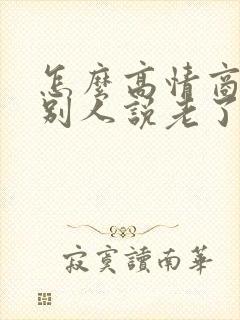 怎麼高情商
別人說老了
寂寞讀南華